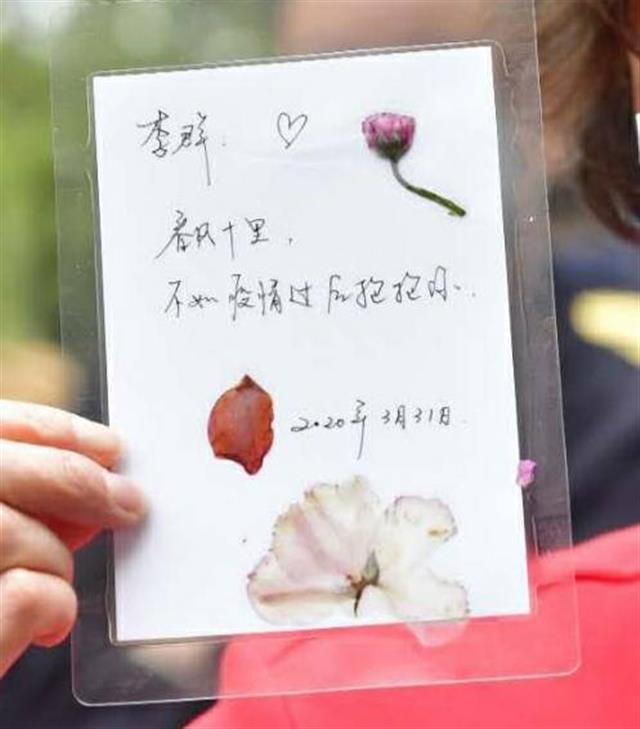 李群：
春风十里，
不如疫情过后抱抱你.
2020年3月31日.